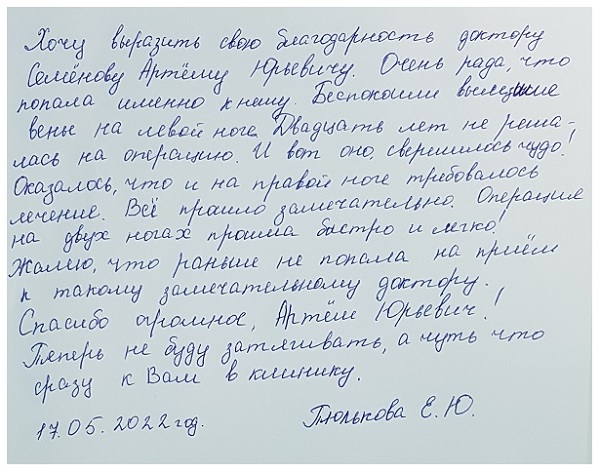 Хочу выразить свою благодарность доктору
Семёнову Артёму Юрьевичу. Очень рада, что
попала именно к нему. Беспокоили вылезшие
вены на левой ноге. Двадцать лет не реша-
лась на операцию. И вот оно, свершилось чудо!
Оказалось, что и на правой ноге требовалось
лечение. Всё прошло замечательно. Операция
на двух ногах прошла быстро и легко!
Жалею, что раньше не попала на приём
к такому замечательному доктору.
Спасибо огромное, Артём Юрьевич!
Теперь не буду затягивать, а чуть что
сразу к Вам в клинику.
17.05.2022 год. Тюлькова Е. Ю.